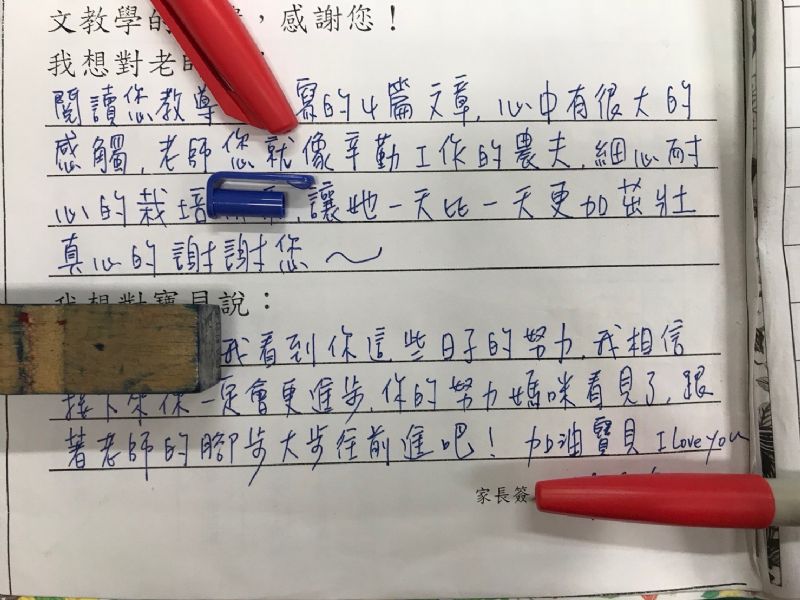 文教學的,感謝您!
我想對老師
閱讀您教導 寫的4篇文章,心中有很大的
感觸,老師您就像辛勤工作的農夫,細心耐
心的栽培 ,讓她一天比一天更加茁壯
真心的謝謝您~
我想對寶貝說:
我看到你這些日子的努力,我相信
接下來你一定會更進步,你的努力媽咪看見了,跟
著老師的腳步大步往前進吧!加油寶貝 I love you
家長簽